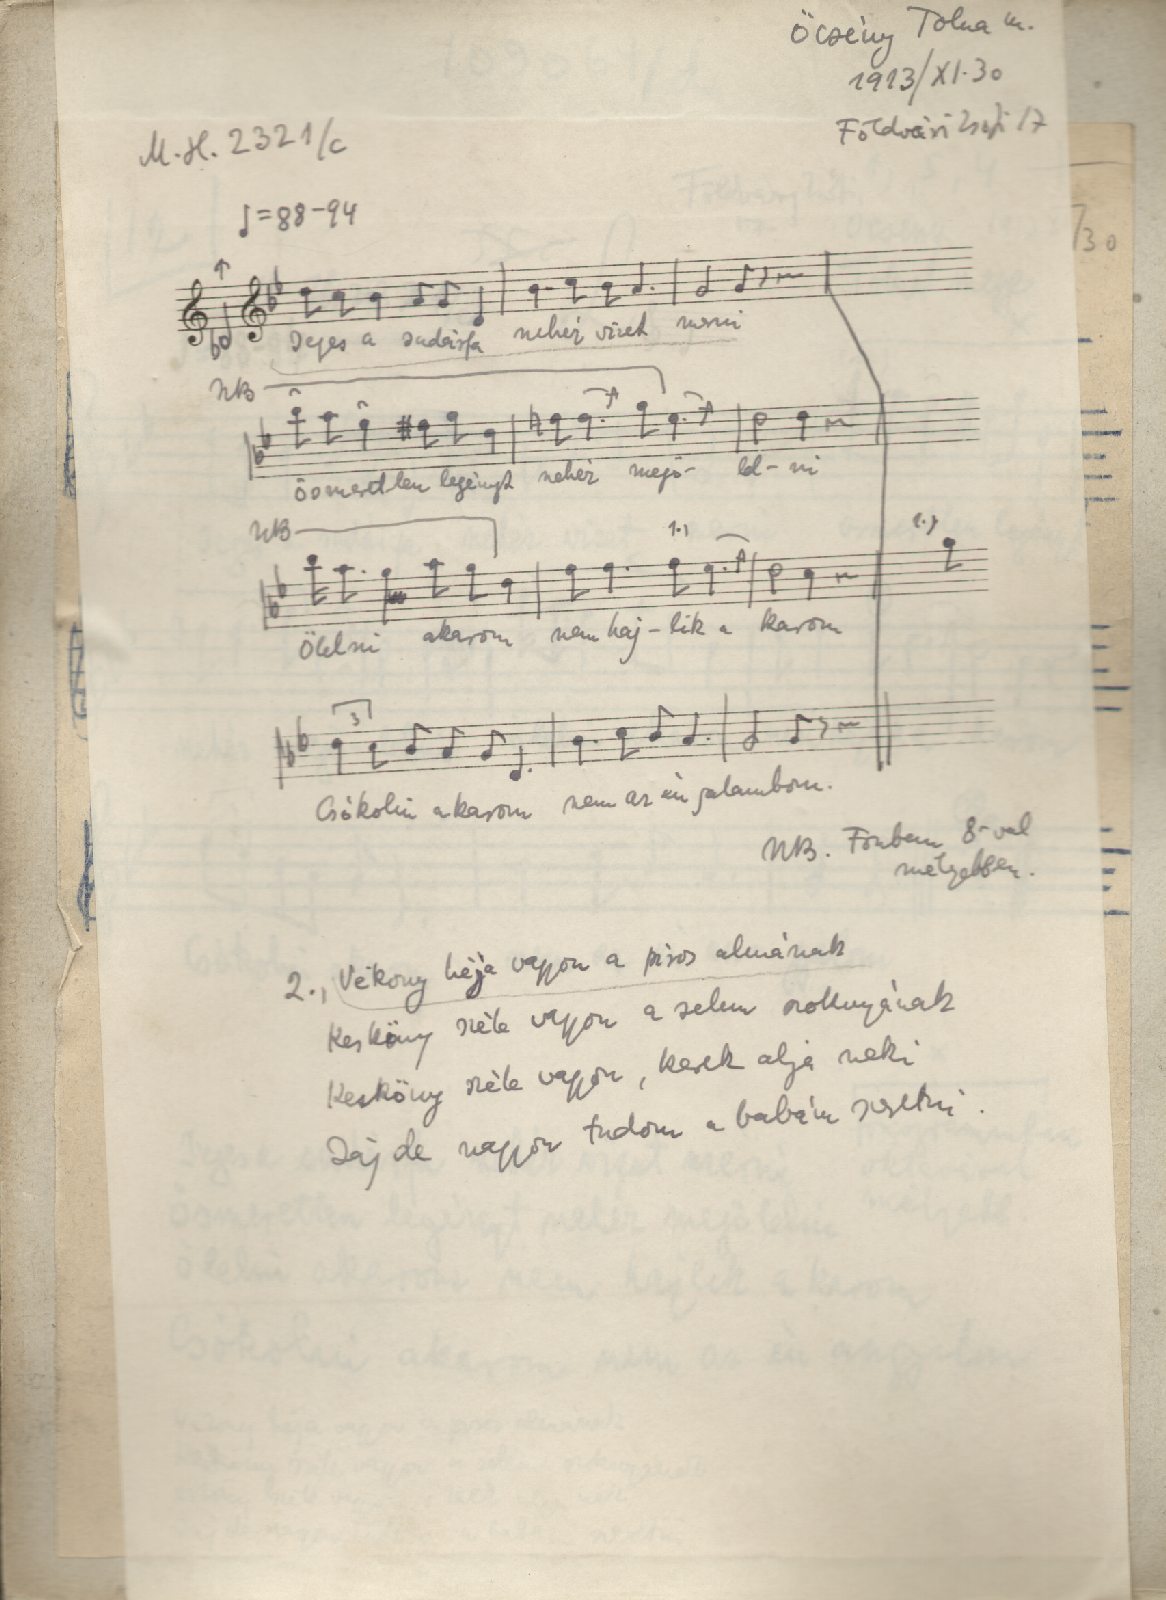 Őcsény Tolna m.
1913/XI.30
Földvári Zsófi 17
M.H. 2321/c
♩=88-94
Jeges a vízet merni
nehéz
NB
ösmeretlen legényt nehéz megö- löl- ni
NB
1.)
1.)
Ölelni akarom nem haj-lik a karom
3
Csókolni akarom nem az én galambom.
NB. Fonban 8-val
mélyebben.
2., Vékony héja vagyon a piros almának
Kesköny széle vagyon a selem szoknyának
Kesköny széle vagyon, kerek alja neki
Jáj de nagyon tudom a babám szeretni.
/30